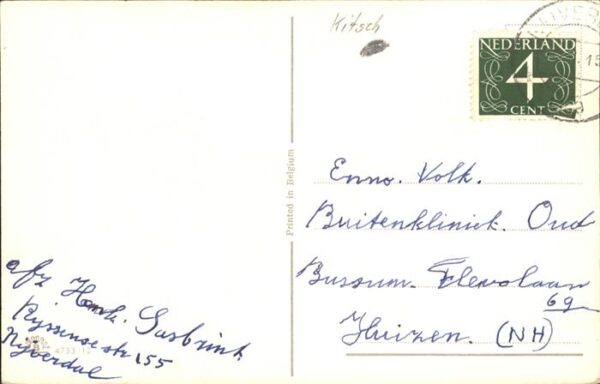 Kitsch
NEDERLAND
4
CENT
Printed in Belgium
Enno. Volk.
Buitenkliniek. Oud
Bussum. Flevolaan
69
Huizen. (NH)
afz Henk. Sasbrink.
Rijssensestr 155
Nijverdal